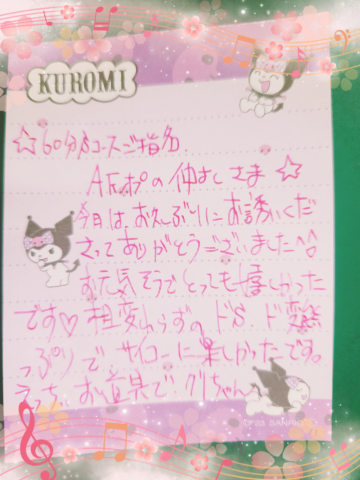 KUROMI
☆60分Sコースご指名
AFオプの仲よしさま☆
今日はお久しぶりにお誘いくだ
さってありがとうございました^^
お元気そうでとっても嬉しかった
です♡相変わらずの ドS、ド変態
っぷりで サイコーに楽しかったです。
えっちぃお道具で クリちゃん
SANRIO